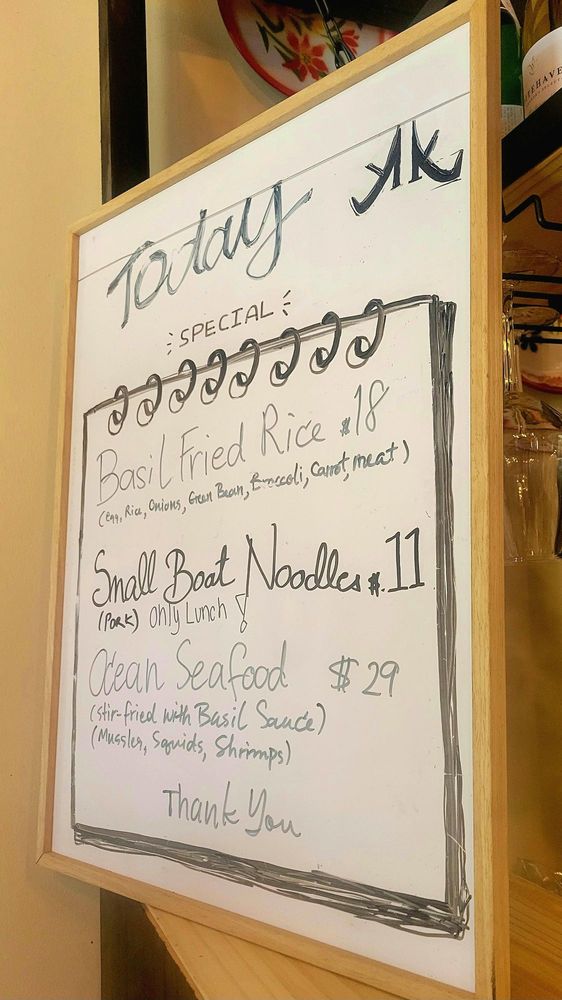 AK
Today
SPECIAL
Basil Fried Rice $18
(egg, Rice, Onions, Green Bean, Broccoli, Carrot, meat)
Small Boat Noodles $.11
(PORK) only Lunch!
Ocean Seafood $29
(stir-fried with Basil Sauce)
(Mussles, Squids, Shrimps)
Thank You